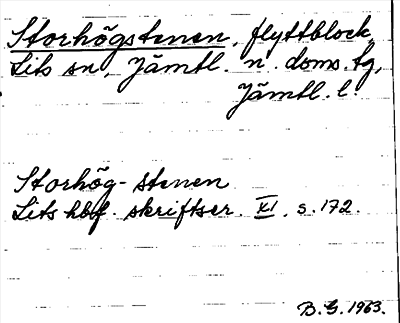 Storhögstenen, flyttblock
Lits sn, Jämtl. n. doms.tg,
Jämtl. l.
Storhög-stenen
Lits hbf. skriftser. XI, s. 172.
B.G. 1963.